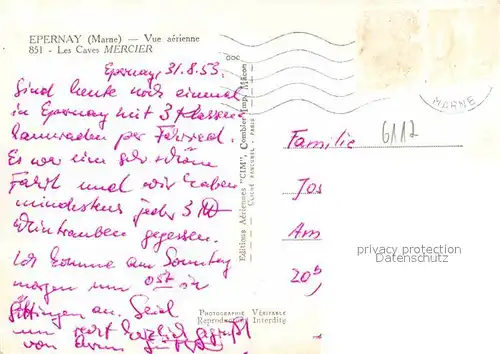 EPERNAY (Marne) — Vue aérienne
851 - Les Caves MERCIER
Epernay, 31.8.53.
Sind heute noch einmal
in Epernay mit 3 Klassen-
kameraden per Fahrrad.
Es war eine sehr schöne
Fahrt und wir haben
mindestens jeder 3 ℔
Weintrauben gegessen.
Ich komme am Sonntag
morgen um in
Göttingen an. Seid
nun herzlich gegrüßt
von
Editions Aériennes "CIM", Combier Imp. Mâcon
MARNE
6117
Familie
Jos
Am
20b,
privacy protection
Datenschutz
PHOTOGRAPHIE VÉRITABLE
Reproduction Interdite